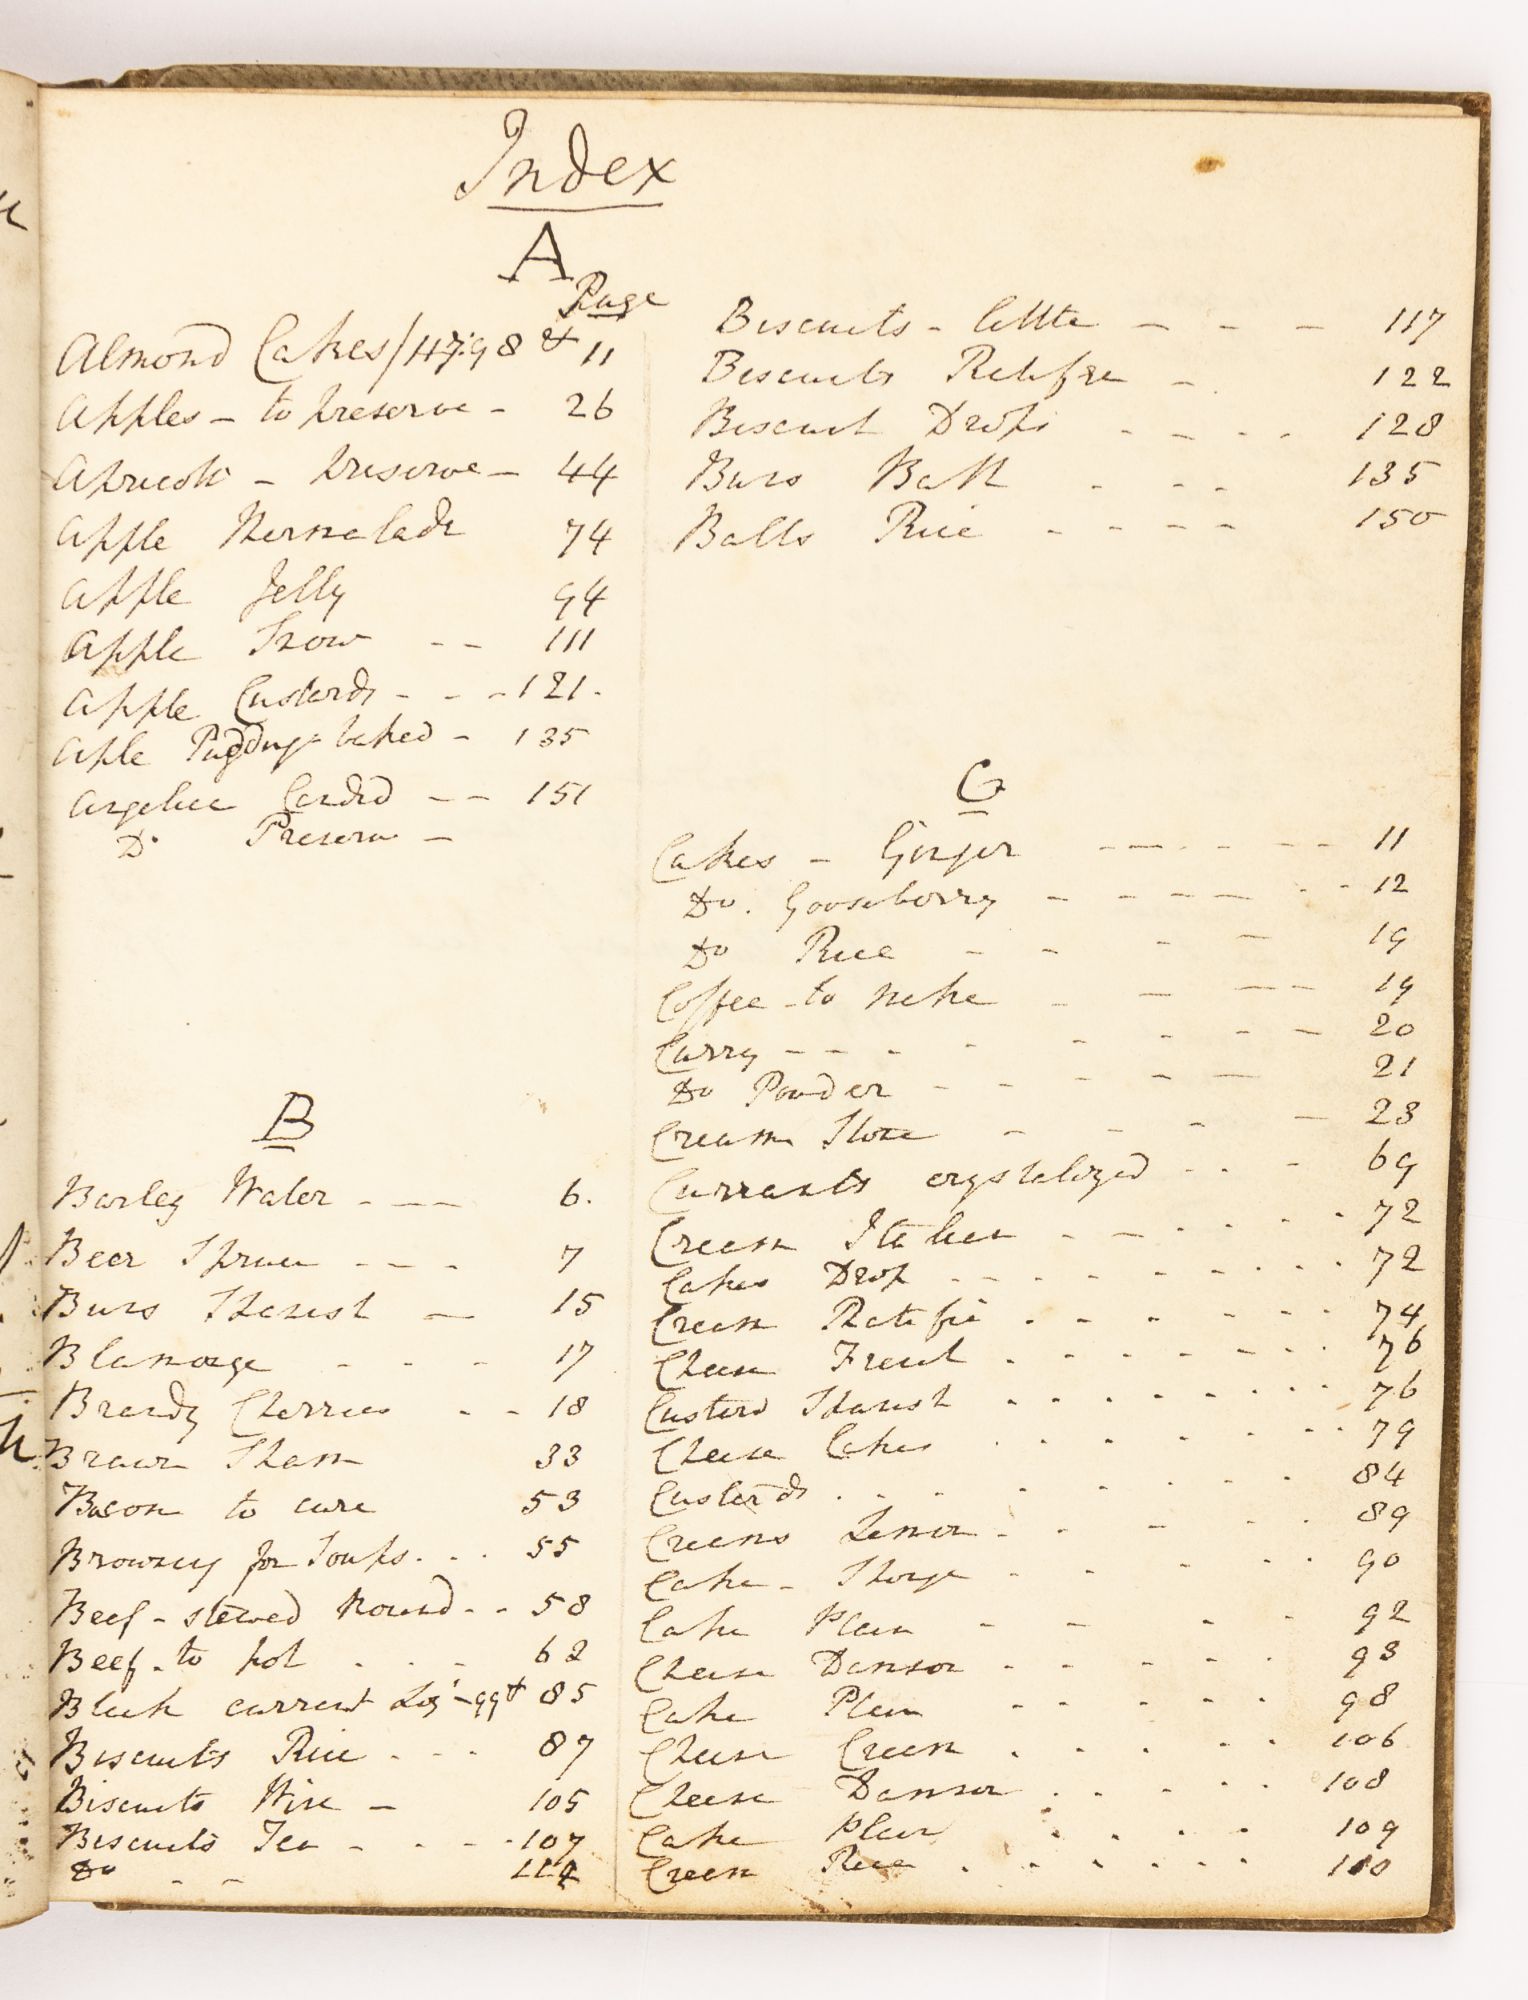 Index
A
Page
Almond Cakes / 117: 98 & 11
Apples - to preserve - 26
Apricots - preserve - 44
Apple Marmalade 74
Apple Jelly 94
Apple Snow - - 111
Apple Custards - - - 121.
Aple Puddings baked - 135
Angelica Candid - - 151
Do Preserve -
B
Barley Water - - - 6.
Beer Spruce - - - 7
Buns Spanish - 15
Blamonge - - - 17
Brandy Cherries - - 18
Brawn Sham 33
Bacon to cure 53
Browning for Soups . . . 55
Beef - stewed Round - - 58
Beef - to pot . . . . 62
Black currant Loz - 99 & 85
Biscuits Rice - - - 87
Biscuits Wine - 105
Biscuits Tea - - - - 107
Do - - 114
Biscuits - little - - - 117
Biscuits Ratifia - 122
Biscuit Drops - - - - 128
Buns Bath - - - 135
Balls Rice - - - - 150
C
Cakes - Ginger - - - - - - - 11
Do. Gooseberry - - - - - - 12
Do Rice - - - - 19
Coffee - to make - - - - 19
Curry - - - - - - - - 20
Do Powder - - - - - 21
Cream Stone - - - - 23
Currants crystalized - - - 69
Cream Italian - - - - - - 72
Cakes Drop - - - - - - - - 72
Cream Ratifia . - - - - - - 74
Cheese French . - - - - - - 76
Custard Spanish - - - - - - - - 76
Cheese Cakes . . . . . . . 79
Custards . . . . . . . . 84
Creams Lemon - - - - - 89
Cake - Sponge - - - - - 90
Cake Plain - - - - 92
Cheese Damson - - - - - 93
Cake Plain - - - - - 98
Cheese Cream . . . . . 106
Cheese Damson . . . . . 108
Cake Plain . . . . 109
Cream Rice . . . . . . 110